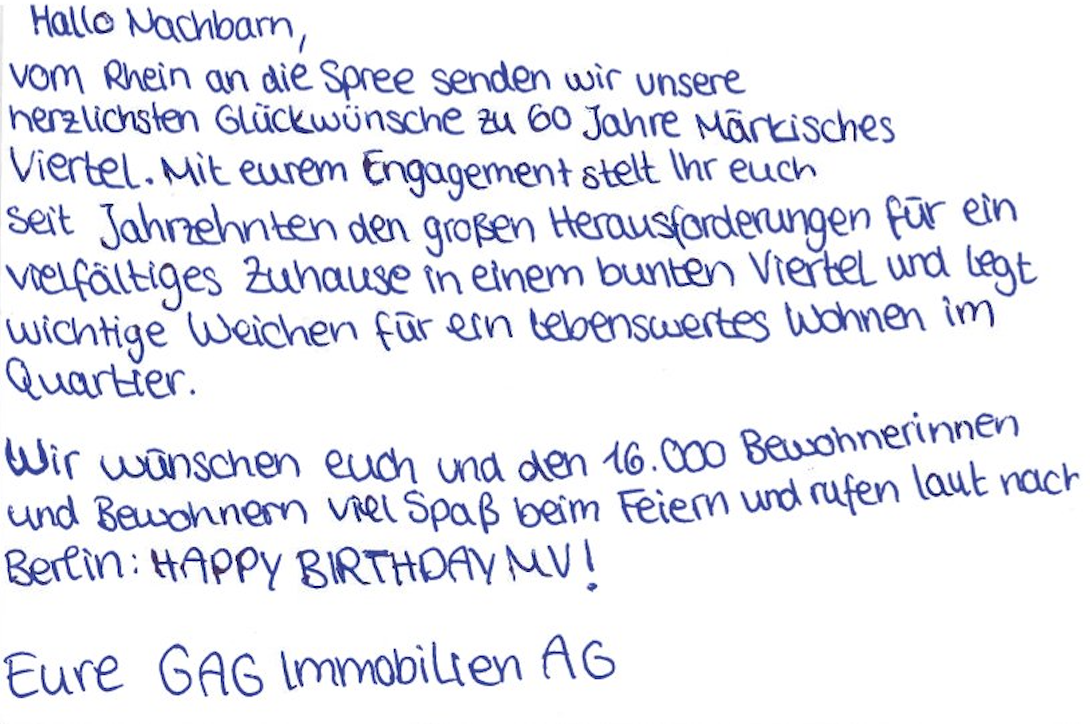 Hallo Nachbarn,
vom Rhein an die Spree senden wir unsere
herzlichsten Glückwünsche zu 60 Jahre Märkisches
Viertel. Mit eurem Engagement stelt Ihr euch
seit Jahrzehnten den großen Herausforderungen für ein
vielfältiges Zuhause in einem bunten Viertel und legt
wichtige Weichen für ein lebenswertes Wohnen im
Quartier.
Wir wünschen euch und den 16.000 Bewohnerinnen
und Bewohnern viel Spaß beim Feiern und rufen laut nach
Berlin: HAPPY BIRTHDAY MV!
Eure GAG Immobilien AG